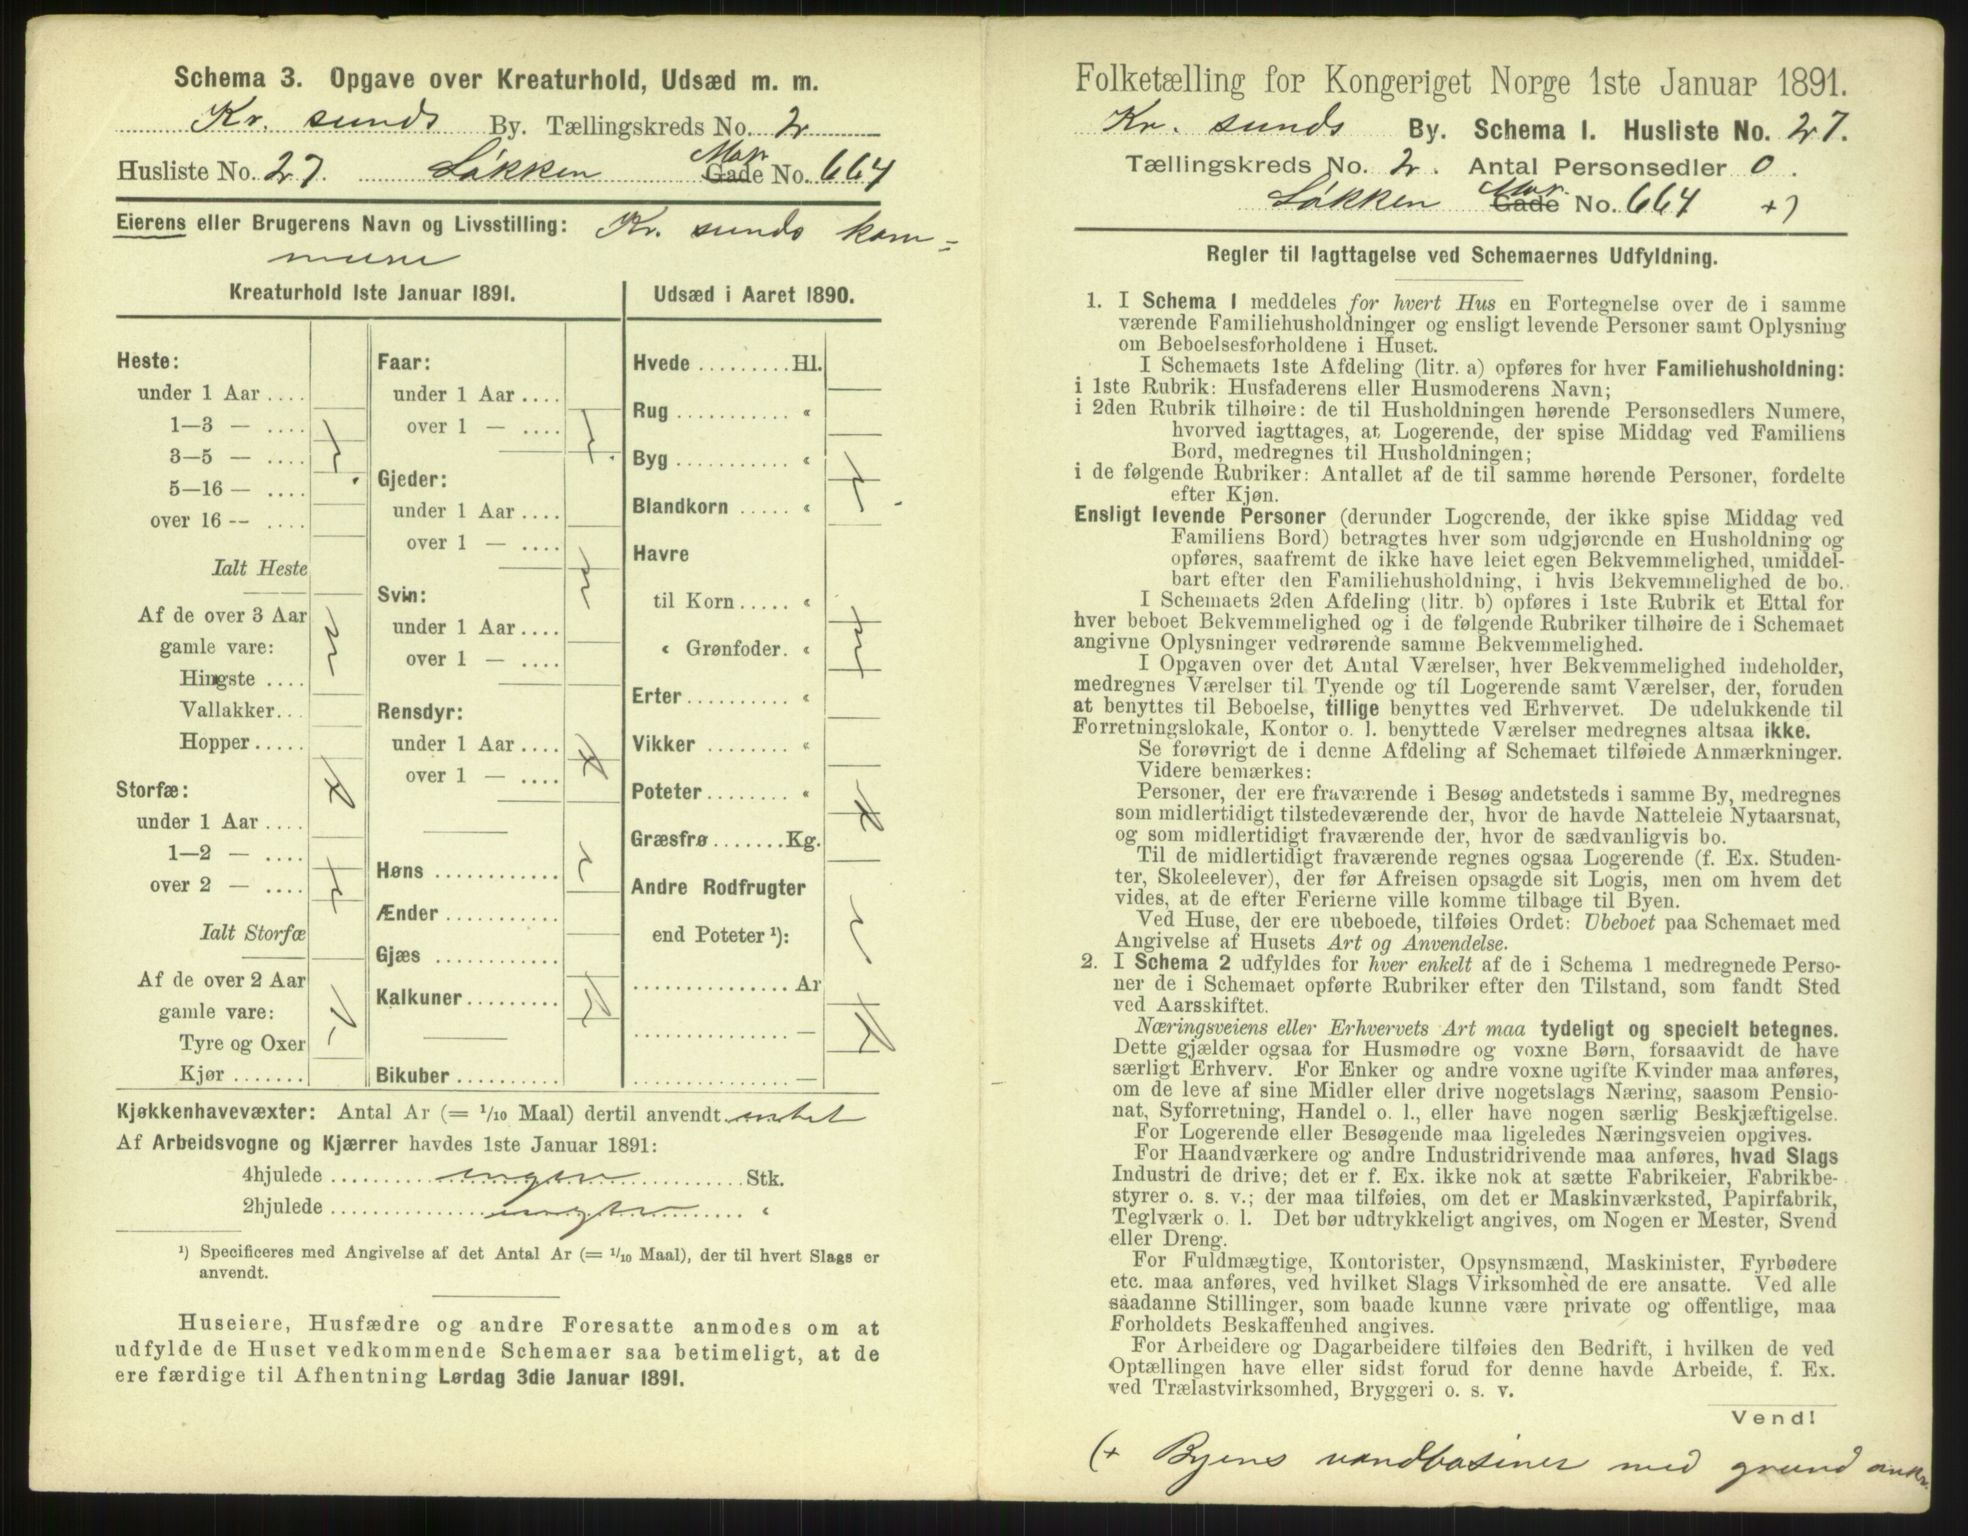 Schema 3. Opgave over Kreaturhold, Udsæd m. m.
Kr. sunds By. Tællingskreds No. 2
Husliste No. 27. Løkken Mar. Gade No. 664
Eierens eller Brugerens Navn og Livsstilling: Kr. sunds kom=
mune
Kreaturhold 1ste Januar 1891.
Heste:
under 1 Aar ....
1—3 — ....
3—5 — ....
5—16 — ....
over 16 -- ....
Ialt Heste
Af de over 3 Aar
gamle vare:
Hingste ....
Vallakker...
Hopper.....
Storfæ:
under 1 Aar ....
1—2 — ....
over 2 — ....
Ialt Storfæ
Af de over 2 Aar
gamle vare:
Tyre og Oxer
Kjør .......
Faar:
under 1 Aar ....
over 1 — ....
Gjeder:
under 1 Aar ....
over 1 — ....
Svin:
under 1 Aar ....
over 1 — ....
Rensdyr:
under 1 Aar ....
over 1 — ....
Høns ............
Ænder ...........
Gjæs ............
Kalkuner.........
Bikuber ..........
Udsæd i Aaret 1890.
Hvede .........Hl.
Rug ........... «
Byg ........... «
Blandkorn ..... «
Havre
til Korn ..... «
« Grønfoder. «
Erter .......... «
Vikker ........ «
Poteter ........ «
Græsfrø .......Kg.
Andre Rodfrugter
end Poteter ¹):
............... Ar
............... —
............... —
Kjøkkenhavevæxter: Antal Ar (= 1/10 Maal) dertil anvendt intet
Af Arbeidsvogne og Kjærrer havdes 1ste Januar 1891:
4hjulede ingen Stk.
2hjulede ingen «
¹) Specificeres med Angivelse af det Antal Ar (= 1/10 Maal), der til hvert Slags er
anvendt.
Huseiere, Husfædre og andre Foresatte anmodes om at
udfylde de Huset vedkommende Schemaer saa betimeligt, at de
ere færdige til Afhentning Lørdag 3die Januar 1891.
Folketælling for Kongeriget Norge 1ste Januar 1891.
Kr. sunds By. Schema I. Husliste No. 27.
Tællingskreds No. 2. Antal Personsedler 0.
Løkken Mar. Gade No. 664 +)
Regler til Iagttagelse ved Schemaernes Udfyldning.
1. I Schema I meddeles for hvert Hus en Fortegnelse over de i samme
værende Familiehusholdninger og ensligt levende Personer samt Oplysning
om Beboelsesforholdene i Huset.
I Schemaets 1ste Afdeling (litr. a) opføres for hver Familiehusholdning:
i 1ste Rubrik: Husfaderens eller Husmoderens Navn;
i 2den Rubrik tilhøire: de til Husholdningen hørende Personsedlers Numere,
hvorved iagttages, at Logerende, der spise Middag ved Familiens
Bord, medregnes til Husholdningen;
i de følgende Rubriker: Antallet af de til samme hørende Personer, fordelte
efter Kjøn.
Ensligt levende Personer (derunder Logerende, der ikke spise Middag ved
Familiens Bord) betragtes hver som udgjørende en Husholdning og
opføres, saafremt de ikke have leiet egen Bekvemmelighed, umiddel-
bart efter den Familiehusholdning, i hvis Bekvemmelighed de bo.
I Schemaets 2den Afdeling (litr. b) opføres i 1ste Rubrik et Ettal for
hver beboet Bekvemmelighed og i de følgende Rubriker tilhøire de i Schemaet
angivne Oplysninger vedrørende samme Bekvemmelighed.
I Opgaven over det Antal Værelser, hver Bekvemmelighed indeholder,
medregnes Værelser til Tyende og til Logerende samt Værelser, der, foruden
at benyttes til Beboelse, tillige benyttes ved Erhvervet. De udelukkende til
Forretningslokale, Kontor o. l. benyttede Værelser medregnes altsaa ikke.
Se forøvrigt de i denne Afdeling af Schemaet tilføiede Anmærkninger.
Videre bemærkes:
Personer, der ere fraværende i Besøg andetsteds i samme By, medregnes
som midlertidigt tilstedeværende der, hvor de havde Natteleie Nytaarsnat,
og som midlertidigt fraværende der, hvor de sædvanligvis bo.
Til de midlertidigt fraværende regnes ogsaa Logerende (f. Ex. Studen-
ter, Skoleelever), der før Afreisen opsagde sit Logis, men om hvem det
vides, at de efter Ferierne ville komme tilbage til Byen.
Ved Huse, der ere ubeboede, tilføies Ordet: Ubeboet paa Schemaet med
Angivelse af Husets Art og Anvendelse.
2. I Schema 2 udfyldes for hver enkelt af de i Schema 1 medregnede Perso-
ner de i Schemaet opførte Rubriker efter den Tilstand, som fandt Sted
ved Aarsskiftet.
Næringsveiens eller Erhvervets Art maa tydeligt og specielt betegnes.
Dette gjælder ogsaa for Husmødre og voxne Børn, forsaavidt de have
særligt Erhverv. For Enker og andre voxne ugifte Kvinder maa anføres,
om de leve af sine Midler eller drive nogetslags Næring, saasom Pensio-
nat, Syforretning, Handel o. l., eller have nogen særlig Beskjæftigelse.
For Logerende eller Besøgende maa ligeledes Næringsveien opgives.
For Haandværkere og andre Industridrivende maa anføres, hvad Slags
Industri de drive; det er f. Ex. ikke nok at sætte Fabrikeier, Fabrikbe-
styrer o. s. v.; der maa tilføies, om det er Maskinværksted, Papirfabrik,
Teglværk o. l. Det bør udtrykkeligt angives, om Nogen er Mester, Svend
eller Dreng.
For Fuldmægtige, Kontorister, Opsynsmænd, Maskinister, Fyrbødere
etc. maa anføres, ved hvilket Slags Virksomhed de ere ansatte. Ved alle
saadanne Stillinger, som baade kunne være private og offentlige, maa
Forholdets Beskaffenhed angives.
For Arbeidere og Dagarbeidere tilføies den Bedrift, i hvilken de ved
Optællingen have eller sidst forud for denne havde Arbeide, f. Ex.
ved Trælastvirksomhed, Bryggeri o. s. v.
Vend!
(+ Byens vandbasiner med grund